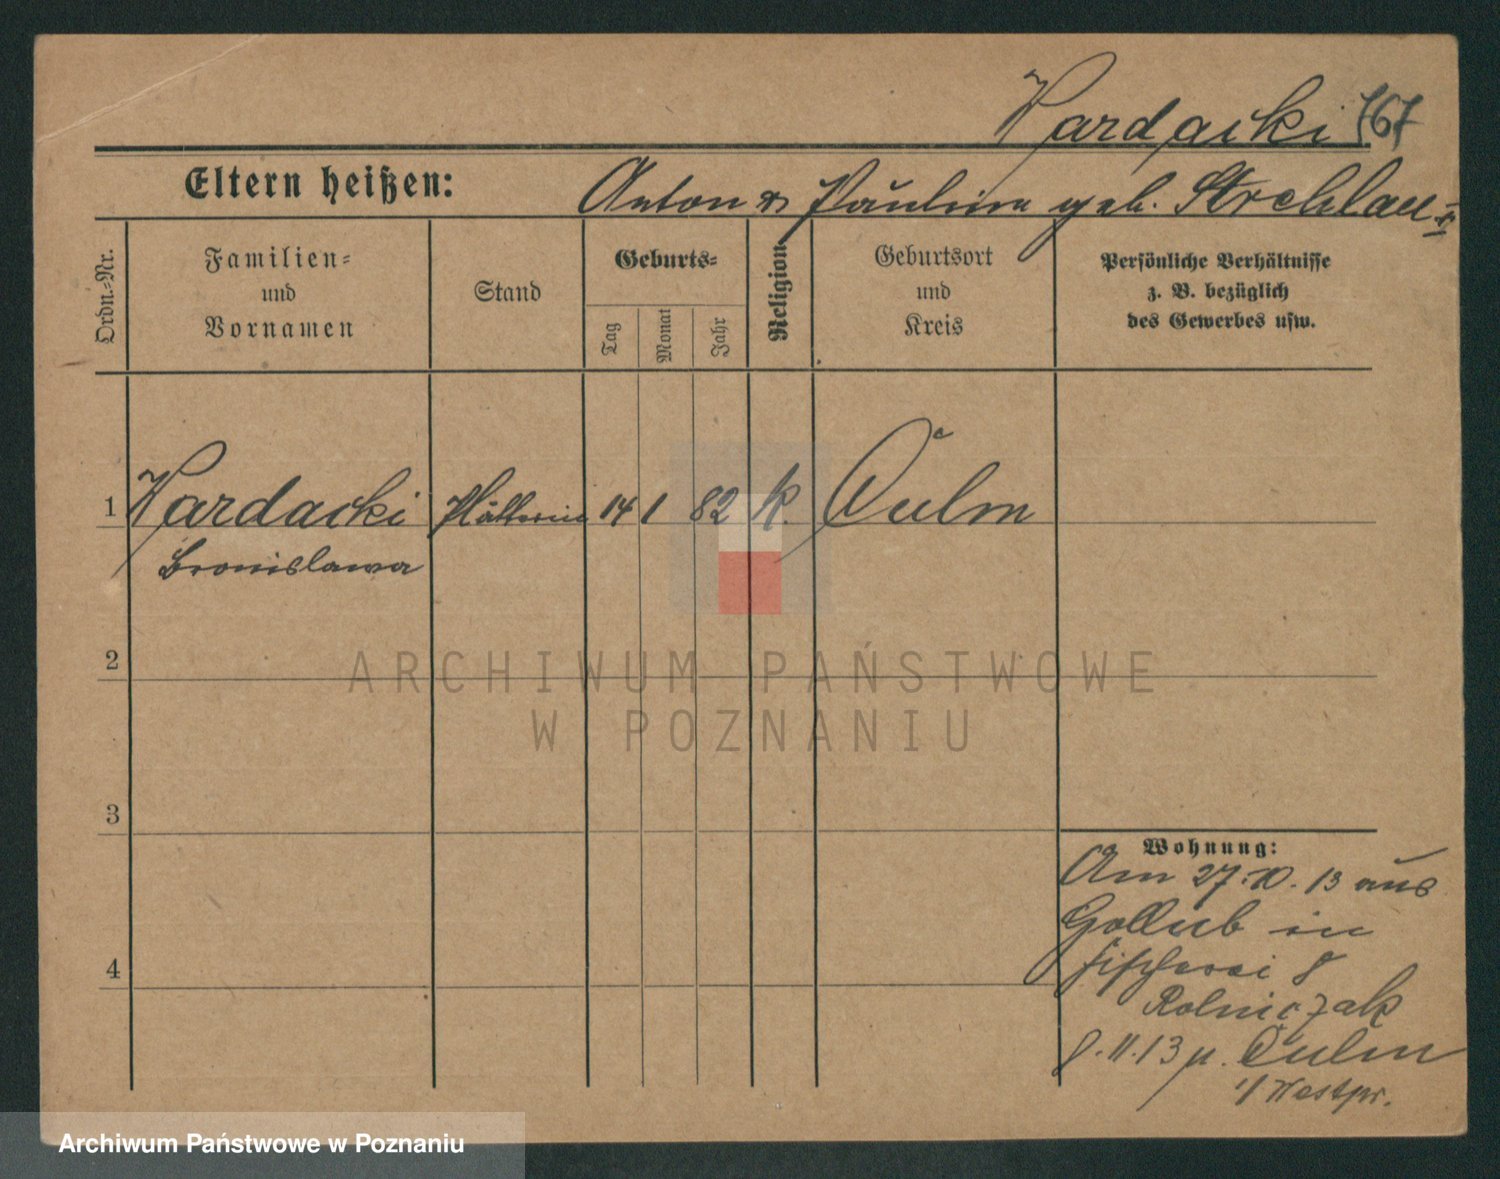 Wardacki 767
Eltern heißen:
Anton & Pauline geb. Strehlau
Ordn.-Nr.
Familien-
und
Vornamen
Stand
Geburts-
Tag
Monat
Jahr
Religion
Geburtsort
und
Kreis
Persönliche Verhältnisse
z. B. bezüglich
des Gewerbes usw.
1 Wardacki 14 1 82 k. Culm
Bronislawa
2
3
4
Wohnung:
Am 27.10.13 aus
Gollub in
Fischerei 8
Rolniczak
8.11.13 n. Culm
i/ Westpr.
ARCHIWUM PAŃSTWOWE
W POZNANIU
Archiwum Państwowe w Poznaniu